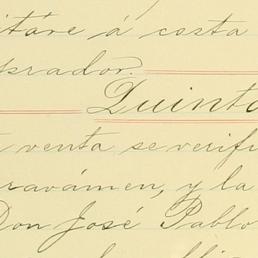 itáre á costa
prador.
Quinto
venta se verifi
ravámen, y la
Don José Pablo